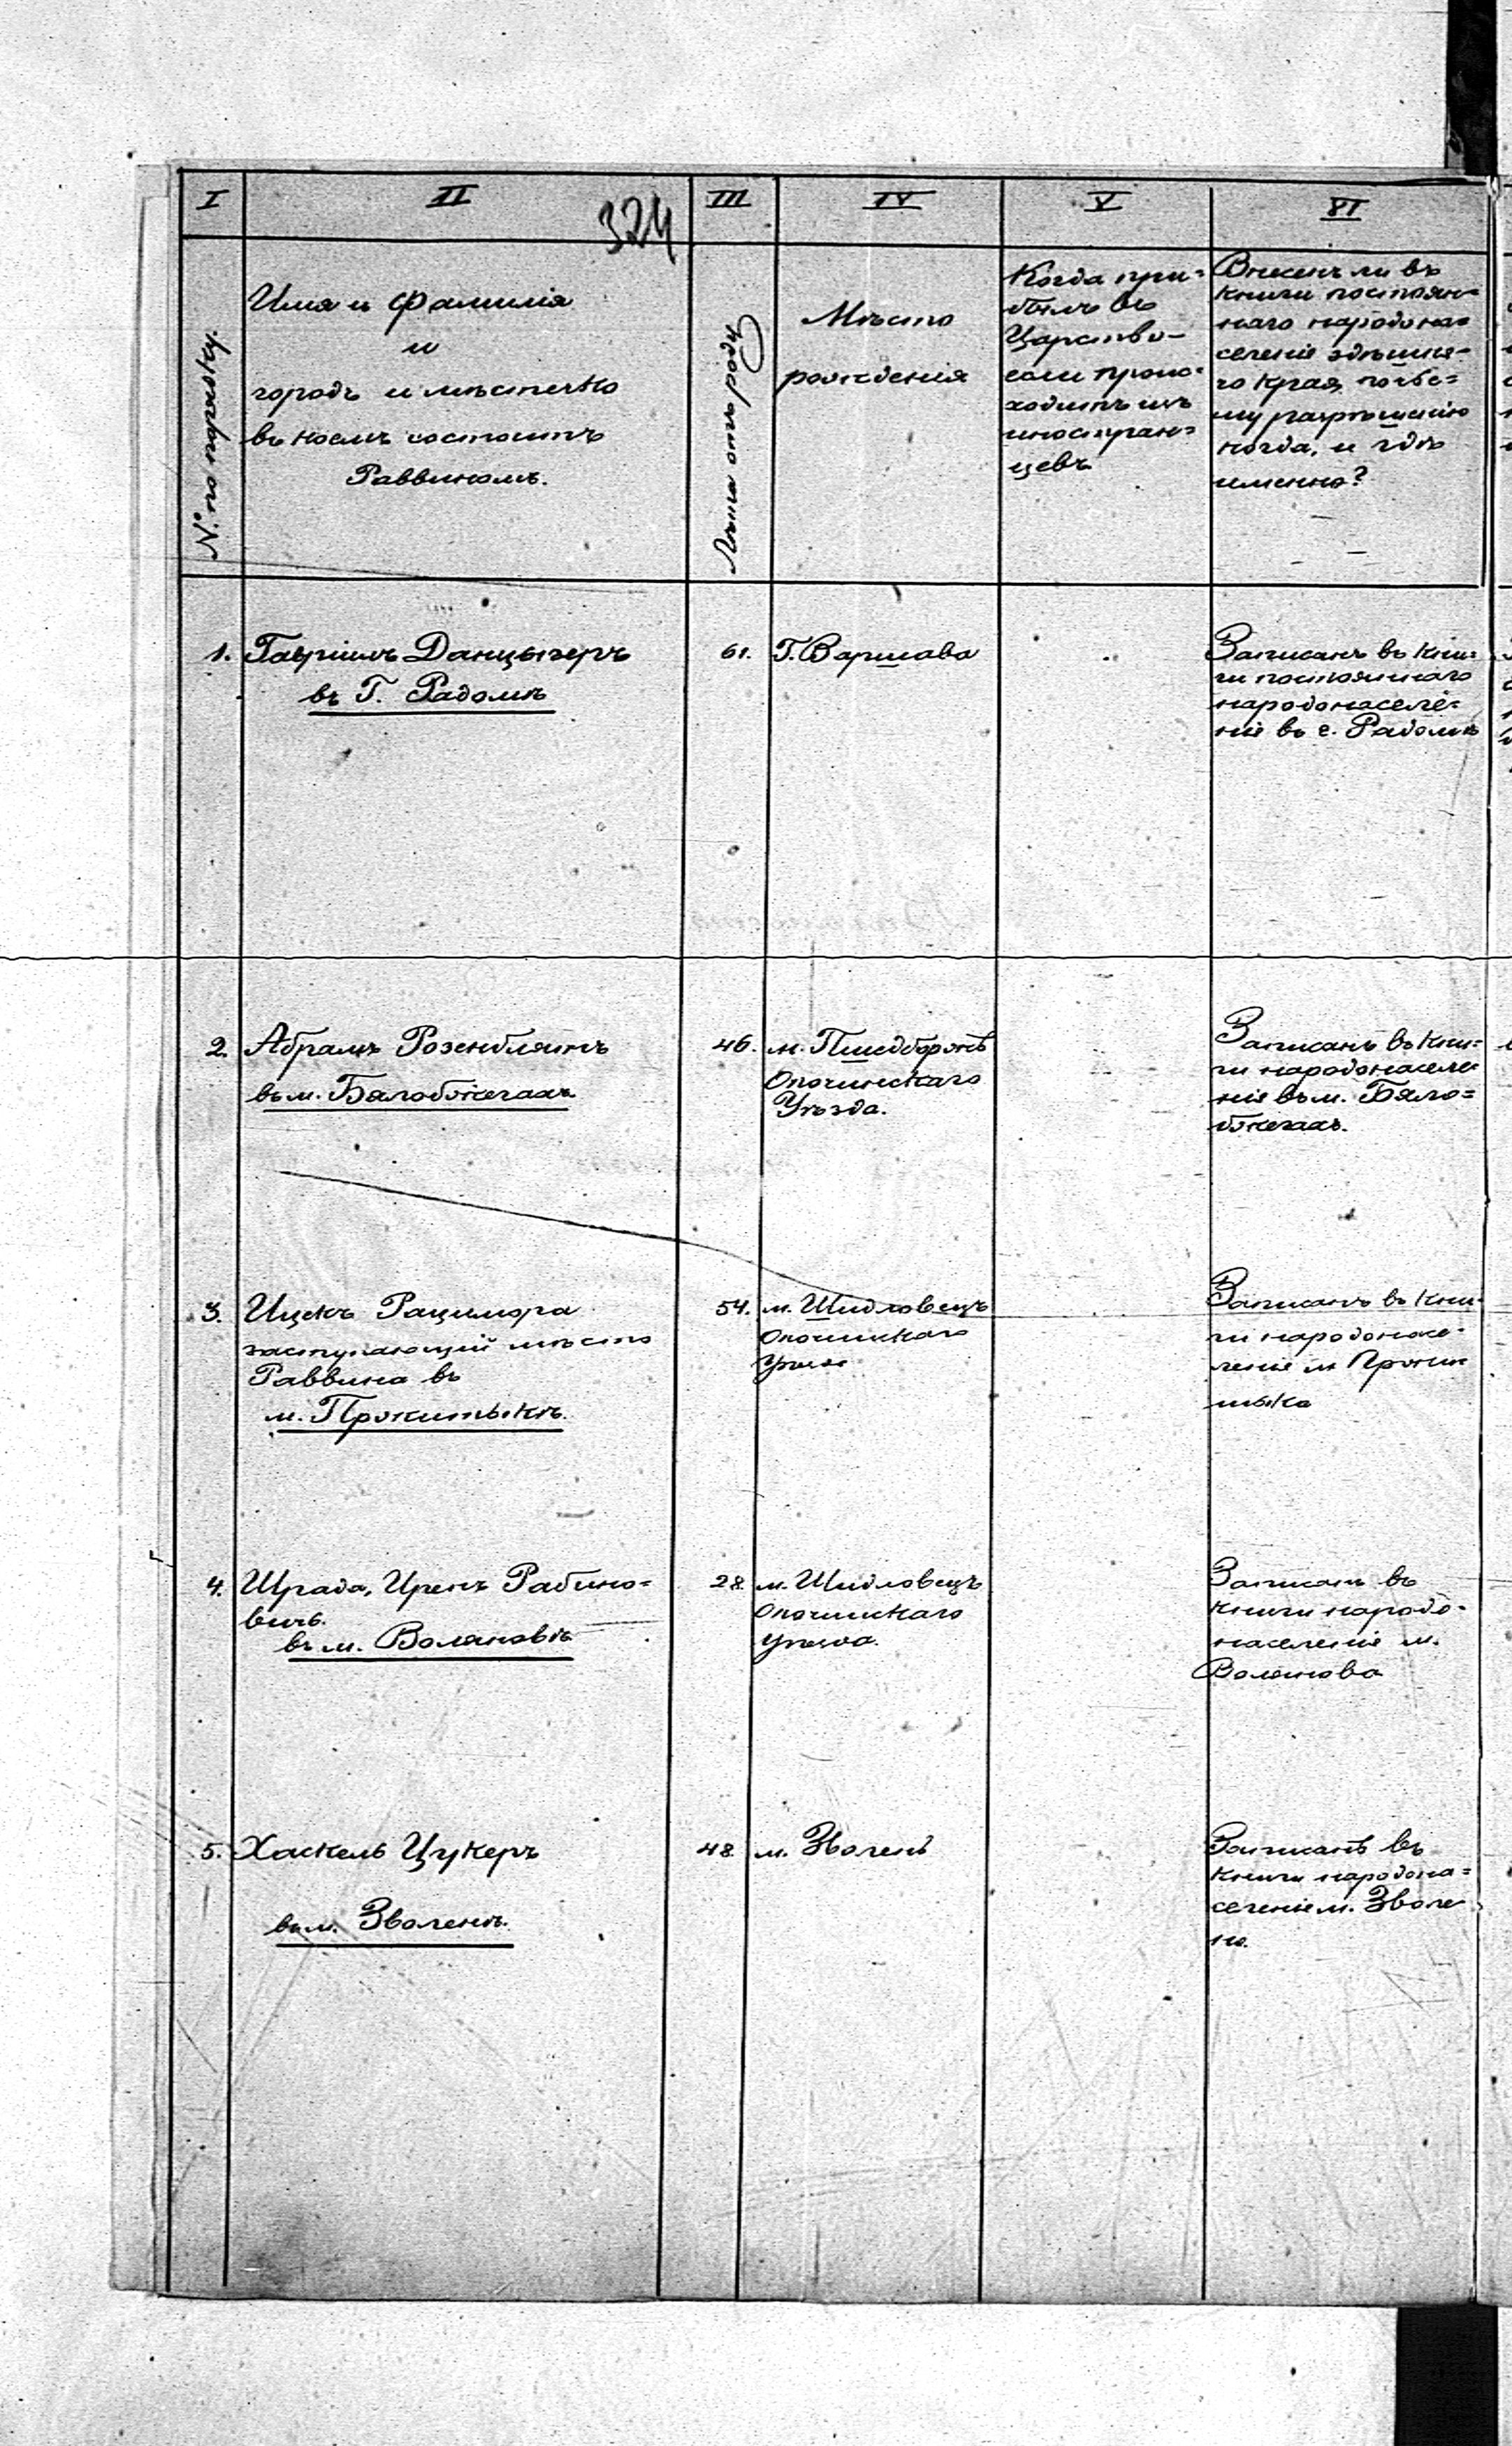 I
II
III
IV
V
VI
324
№ по порядку
Имя и фамилія
и
городъ и мѣстечко
въ коемъ состоитъ
Раввиномъ.
Лѣта отъ роду
Мѣсто
рожденія
Когда при=
былъ въ
Царство—
если проис=
ходитъ изъ
иностран=
цевъ
Внесенъ ли въ
книги постоян=
наго народона=
селенія здѣшня=
го края, по чье=
му разрѣшенію
когда, и гдѣ
именно?
1.
Гавріилъ Данцыгеръ
въ Г. Радомѣ
61.
Г. Варшава
Записанъ въ кни=
ги постояннаго
народонаселе=
нія въ г. Радомѣ
2.
Абрамъ Розенблятъ
въ м. Бялобжегахъ
46.
м. Пшедборжѣ
Опочинскаго
Уѣзда.
Записанъ въ кни=
ги народонаселе
нія въ м. Бяло=
бжегахъ.
3.
Ицекъ Рацимора
заступающій мѣсто
Раввина въ
м. Пржитыкѣ.
54.
м. Шидловецъ
Опочинскаго
Уѣзда
Записанъ въ кни=
ги народонасе=
ленія м Пржи
тыка
4.
Шрада, Иренъ Рабино=
вичъ.
въ м. Воляновѣ
28.
м. Шидловецъ
Опочинскаго
Уѣзда.
Записанъ въ
книги народо=
населенія м.
Волянова
5.
Хаскель Цукеръ
въ м. Зволенѣ.
48
м. Зволенѣ
Записанъ въ
книги народона=
селенія м. Зволе
на.